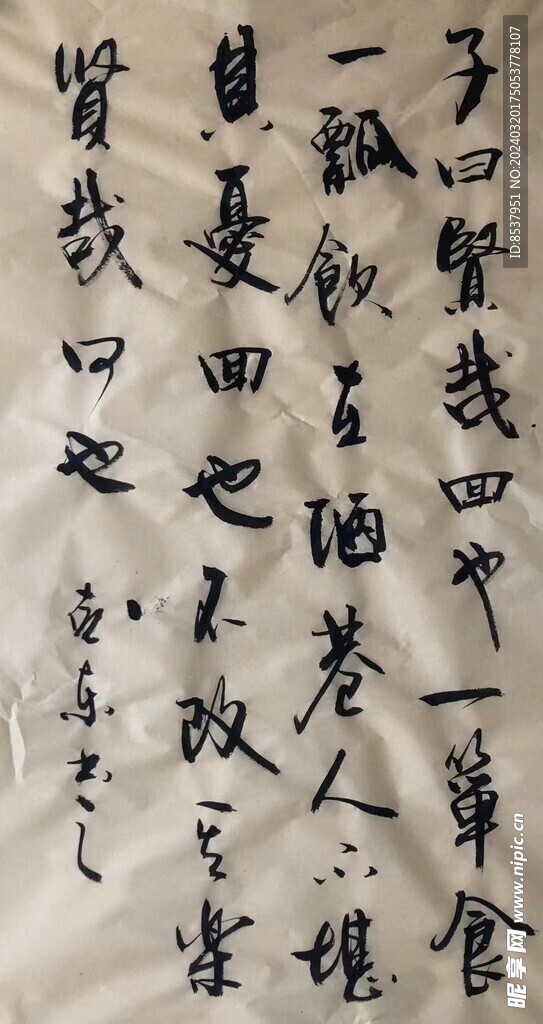 子曰賢哉回也一箪食
一瓢飲在陋巷人不堪
其憂回也不改其樂
賢哉回也
东书之
ID:8537951 NO:20240320175053778107
昵享网 www.nipic.cn